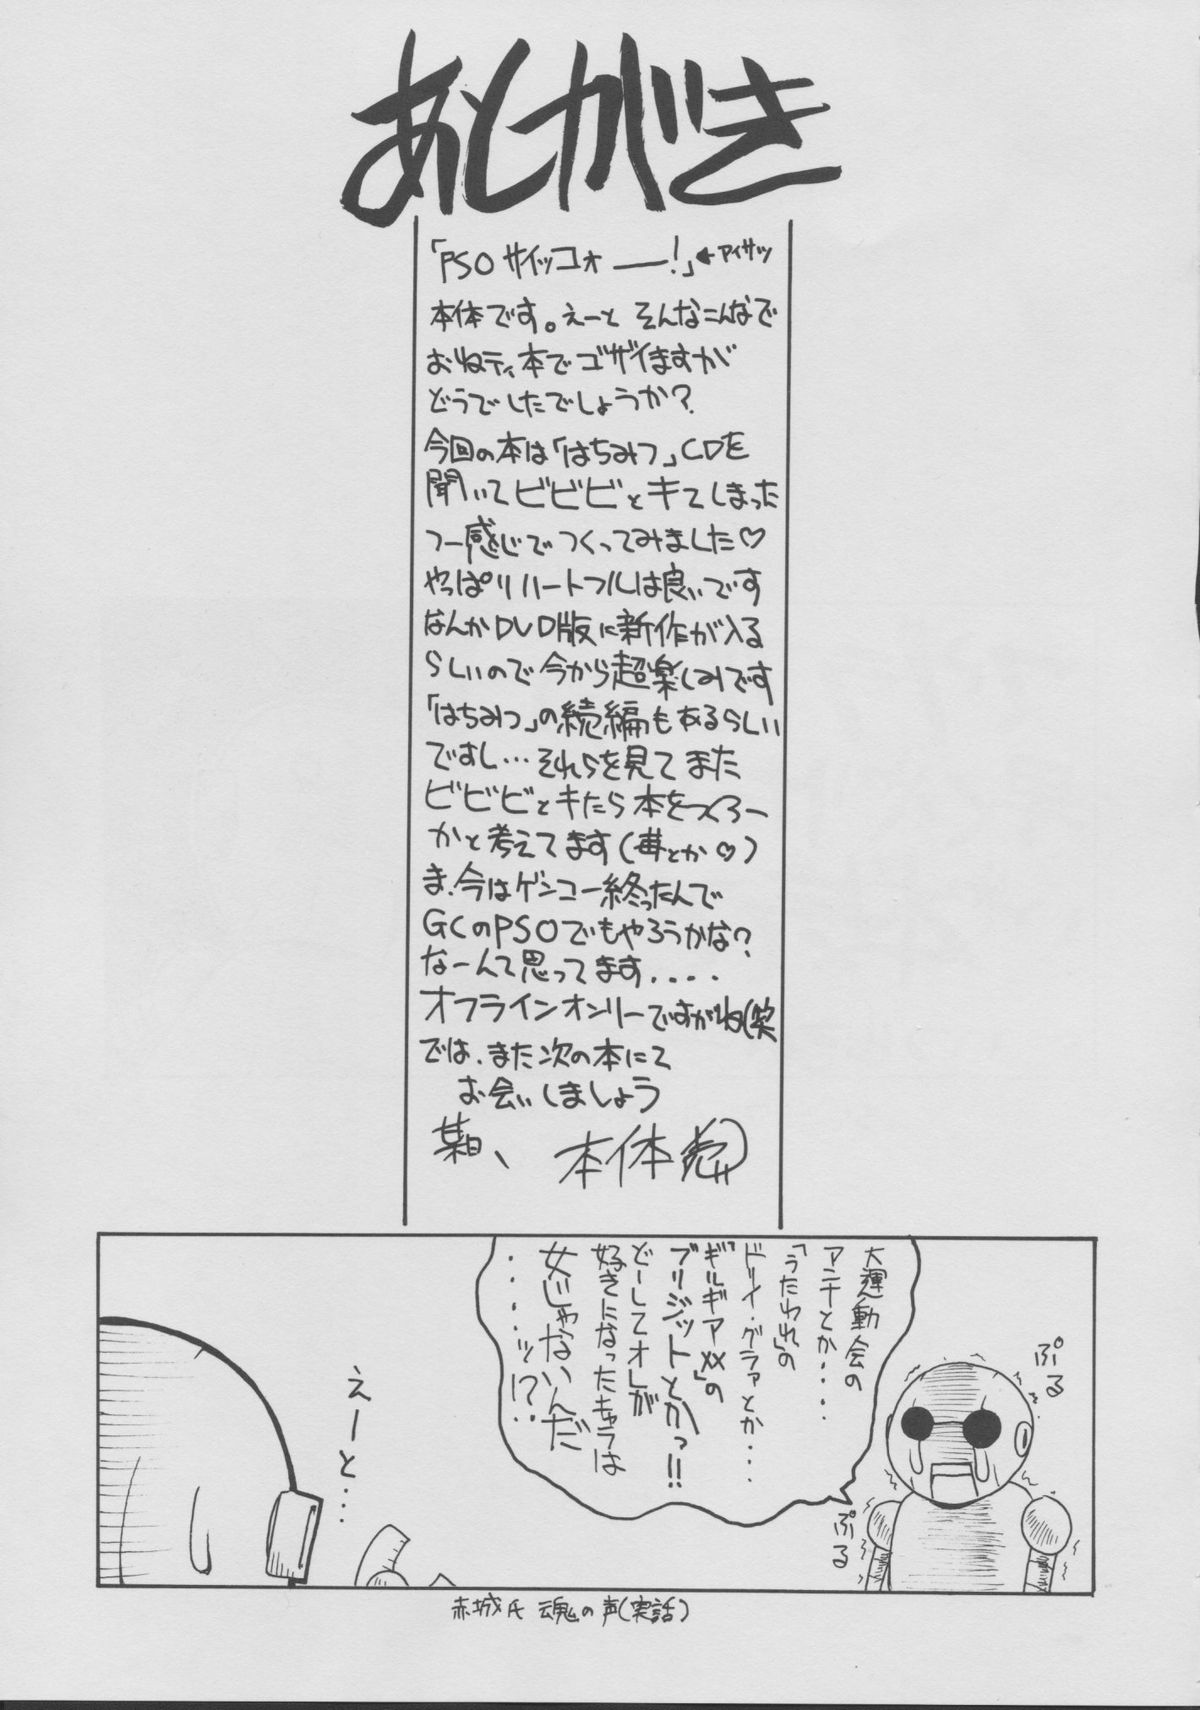 あとがき
「PSO サイッコォーー!」←アイサツ
本体です。えーと そんなこんなで
おねティ本でゴザイますが
どうでしたでしょうか?
今回の本は「はちみつ」CDを
聞いてビビビとキてしまった
つー感じでつくってみました♡
やっぱりハートフルは良いです
なんかDVD版に新作が入る
らしいので今から超楽しみです
「はちみつ」の続編もあるらしい
ですし…それらを見てまた
ビビビとキたら本をつくろー
かと考えてます(苺とか♡)
ま、今はゲンコー終ったんで
GCのPSOでもやろうかな?
なーんて思ってます....
オフラインオンリーですがね(笑
では、また次の本にて
お会いしましょう
某日、 本体
大運動会の
アニキとか....
「うたわれ」の
ドリィ・グラァとか...
「ギルギアXX」の
ブリジットとかっ!!
どーしてオレが
好きになったキャラは
女じゃないんだ
.....ッ!?
ぷる
ぷる
えーと…
赤城氏 魂の声(実話)